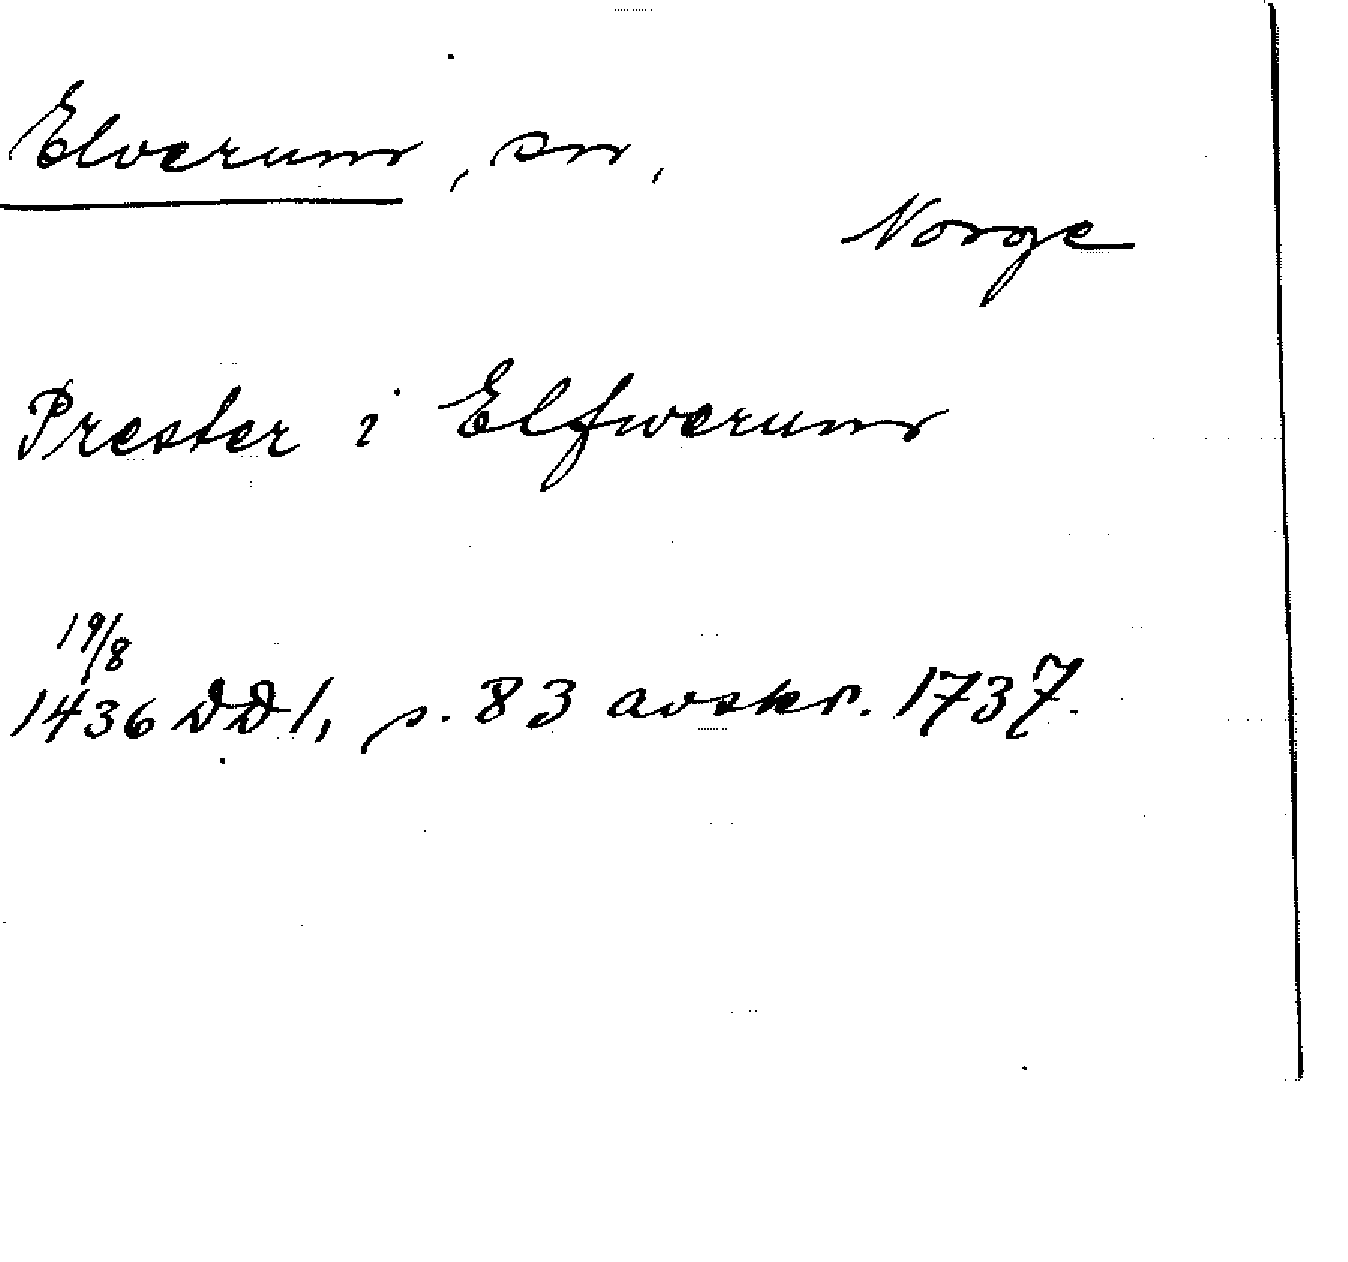 Elverum, sn,
Norge
Prester i Elfwerum
19/8
1436 DD1, s. 83 avskr. 1737.